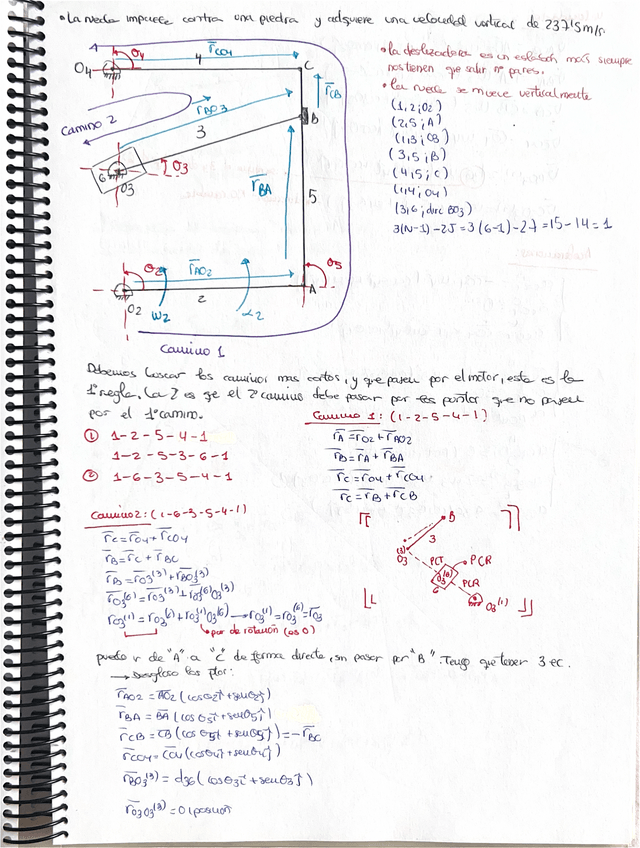 • La rueda impacta contra una piedra y adquiere una velocidad vertical de 2375m/s.
• la deslizadera es un eslabón más siempre
nos tienen que salir nº pares.
• La rueda se mueve verticalmente
(1,2;O2)
(2,5;A)
(1,3;O3)
(3,5;B)
(4,5;C)
(1,4;O4)
(3,6;direc BO3)
3(N-1)-2J=3(6-1)-2·7=15-14=1
θ4
r̄CO4
4
O4
C
r̄CB
r̄BO3
camino 2
3
B
6
O3
θ3
r̄BA
5
θ2
r̄AO2
θ5
O2
ω2
2
α2
A
camino 1
Debemos buscar los caminos mas cortos, y que pasen por el motor, esta es la
1ª regla. La 2 es que el 2º camino debe pasar por los puntos que no pasen
por el 1º camino.
① 1-2-5-4-1
1-2-5-3-6-1
② 1-6-3-5-4-1
Camino 1: (1-2-5-4-1)
r̄A = r̄O2 + r̄AO2
r̄B = r̄A + r̄BA
r̄C = r̄O4 + r̄CO4
r̄C = r̄B + r̄CB
Camino 2: (1-6-3-5-4-1)
r̄C = r̄O4 + r̄CO4
r̄B = r̄C + r̄BC
r̄B = r̄O3⁽³⁾ + r̄BO3⁽³⁾
r̄O3⁽⁶⁾ = r̄O3⁽³⁾ + r̄O3⁽⁶⁾O3⁽³⁾
r̄O3⁽¹⁾ = r̄O3⁽⁶⁾ + r̄O3⁽¹⁾O3⁽⁶⁾ → r̄O3⁽¹⁾ = r̄O3⁽⁶⁾ = r̄O3
par de rotación (es 0)
B
3
(3)
O3
PCT
PCR
(6)
O3
6
PCR
O3⁽¹⁾
puedo ir de "A" a "C" de forma directe, sin pasar por "B". Tengo que tener 3 ec.
→ Desgloso los r̄tor:
r̄AO2 = A̅O̅2 (cosθ2 i⃗ + senθ2 j⃗)
r̄BA = B̅A̅ (cosθ5 i⃗ + senθ5 j⃗)
r̄CB = C̅B̅ (cosθ5 i⃗ + senθ5 j⃗) = -r̄BC
r̄CO4 = C̅O̅4 (cosθ4 i⃗ + senθ4 j⃗)
r̄BO3⁽³⁾ = d36 (cosθ3 i⃗ + senθ3 j⃗)
r̄O3O3⁽³⁾ = 0 (posición